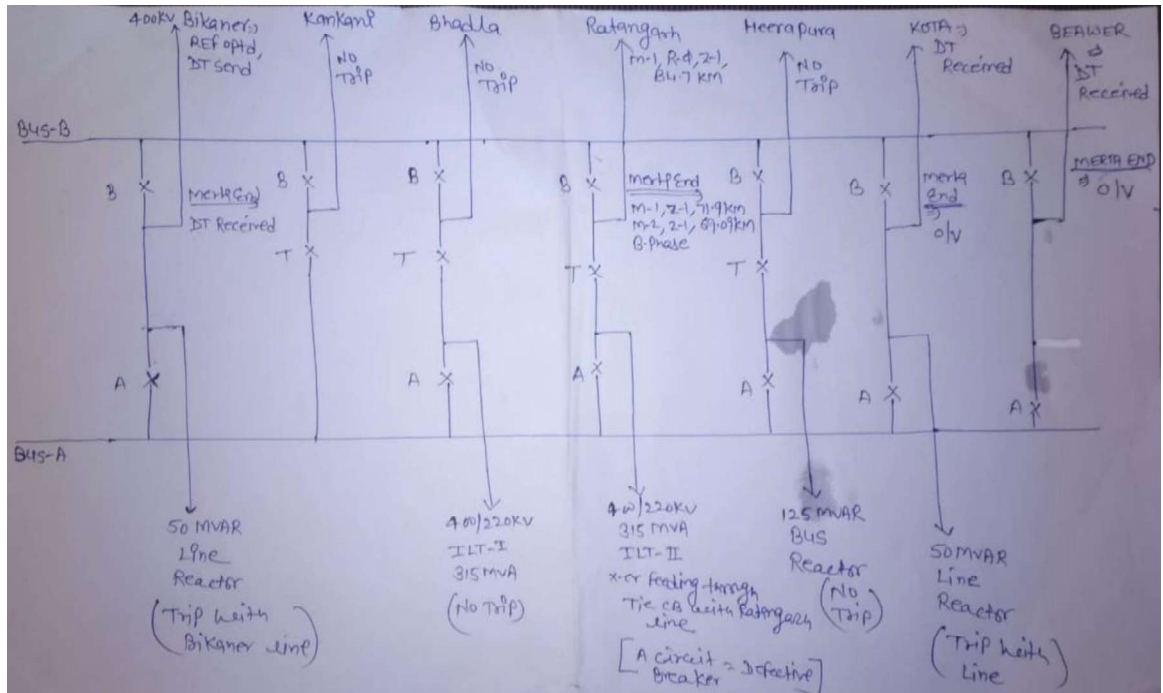 400KV Bikaner⇒
REF optd,
DT Send
Kankani
NO
Trip
Bhadla
NO
Trip
Ratangarh
M-1, R-Φ, Z-1,
84.7 KM
Heerapura
NO
Trip
KOTA ⇒
DT
Received
BEAWER
⇒
DT
Received
BUS-B
B
Merta End
DT Received
B
T
B
T
B
Merta End
M-1, Z-1, 71.9km
M-2, Z-1, 69.09km
B-Phase
T
B
T
B
Merta
End
⇒
O/V
B
MERTA END
⇒ O/V
A
A
A
A
A
A
BUS-A
50 MVAR
Line
Reactor
(Trip with
Bikaner line)
400/220KV
ILT-I
315MVA
(No Trip)
400/220KV
315 MVA
ILT-II
x-er feeding through
Tie CB with Ratangarh
line
[A circuit = Defective]
Breaker
125MVAR
BUS
Reactor
(No
Trip)
50MVAR
Line
Reactor
(Trip with
Line)